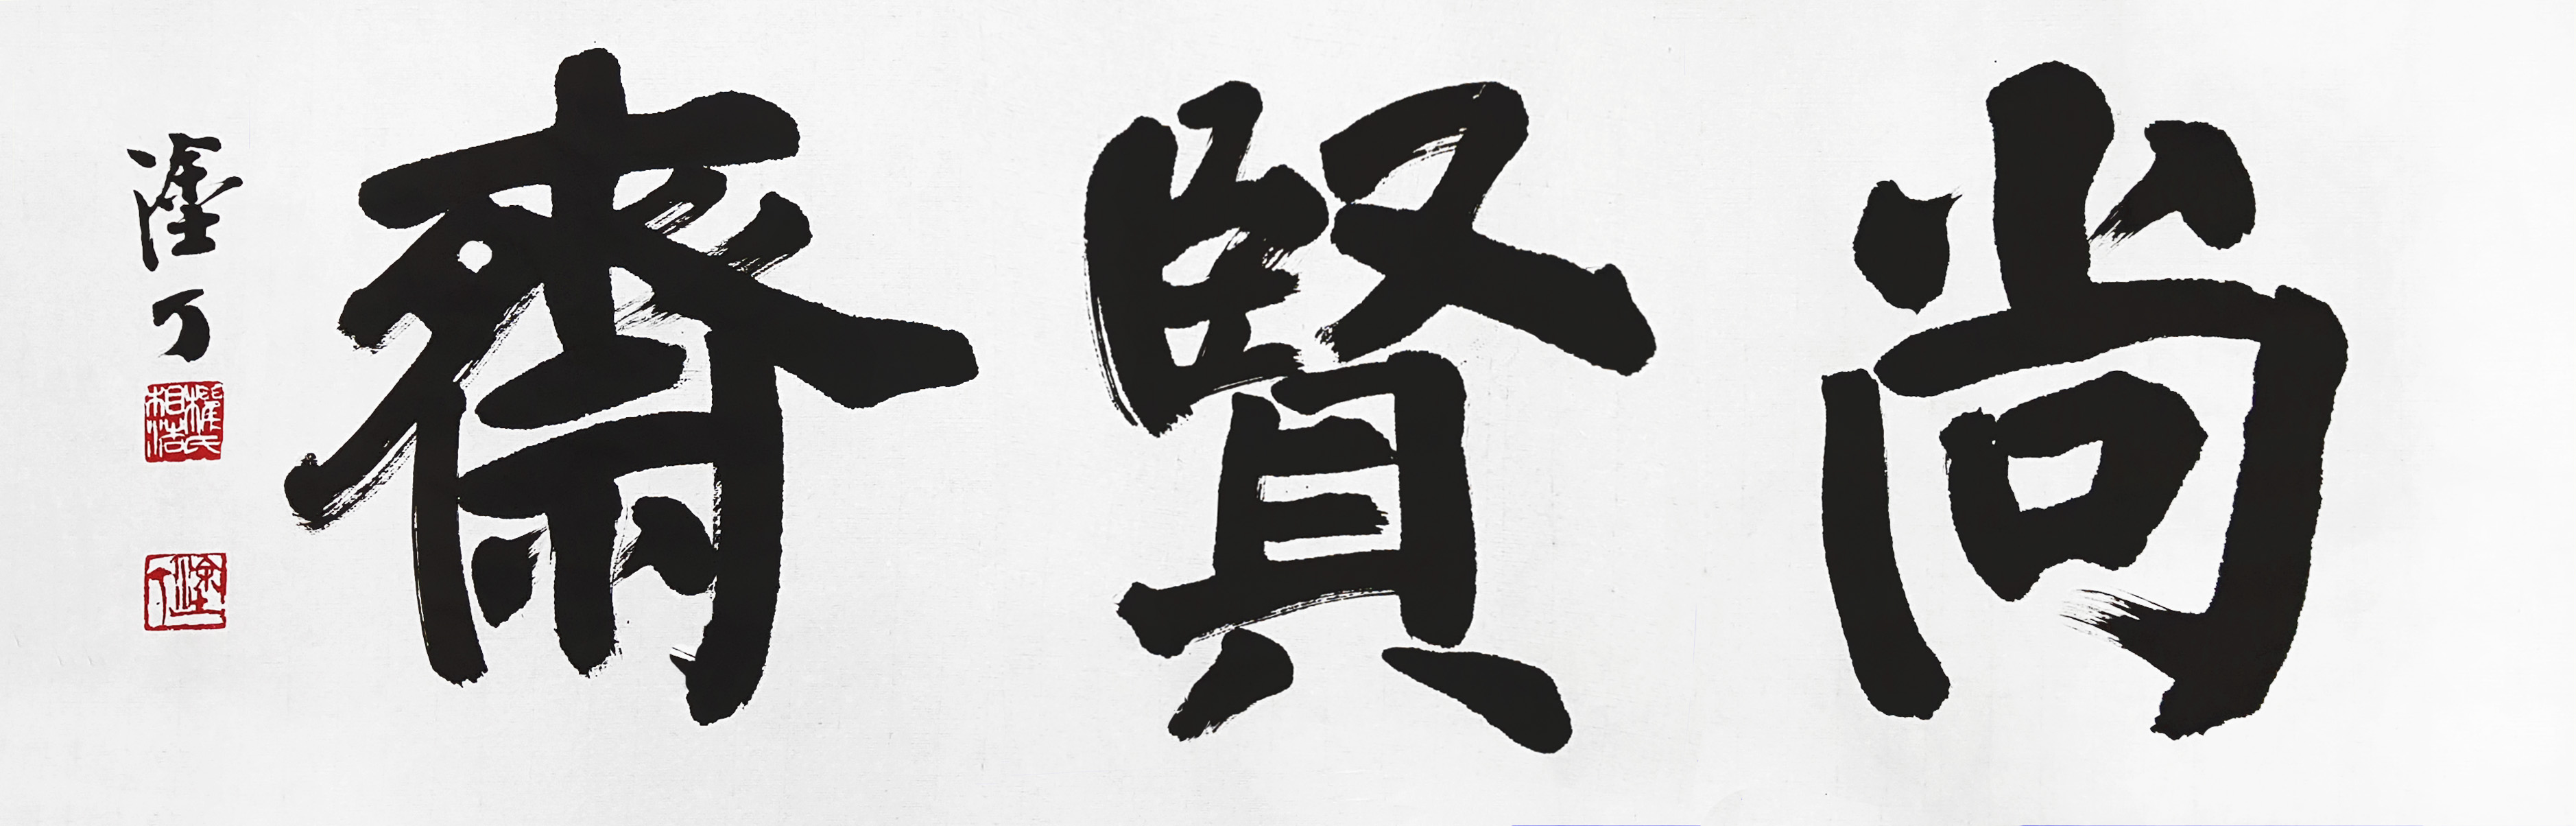 尚賢齋
塗丁